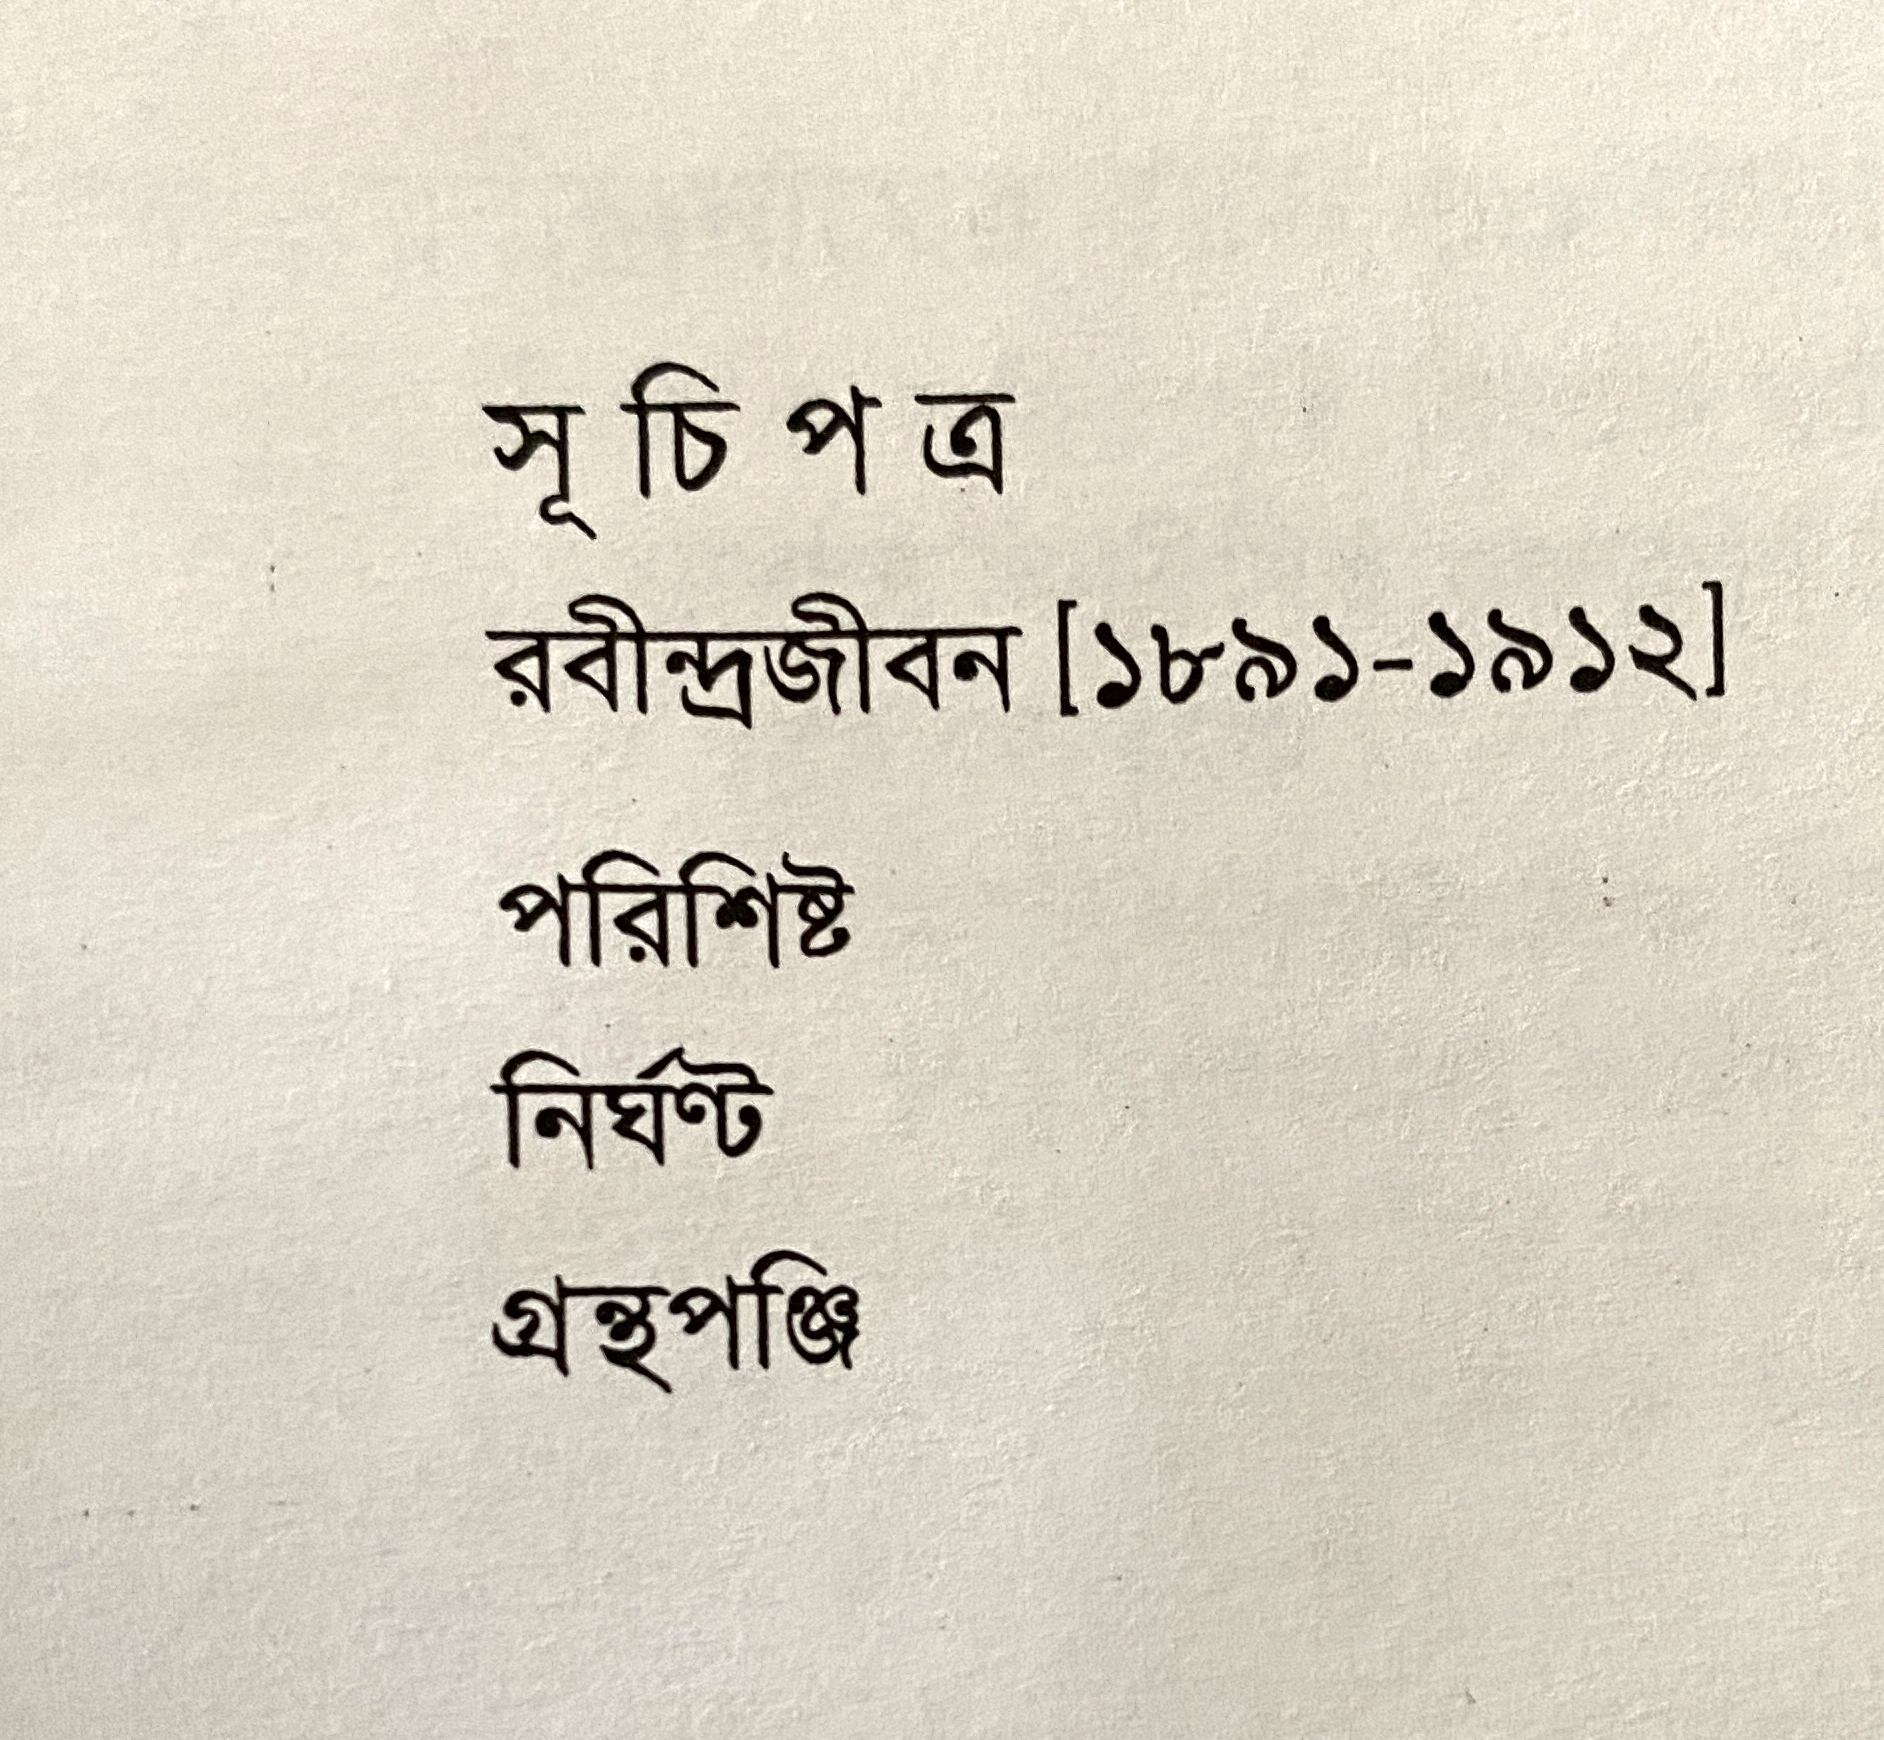 সূ চি প ত্র
রবীন্দ্রজীবন [১৮৯১-১৯১২]
পরিশিষ্ট
নির্ঘণ্ট
গ্রন্থপঞ্জি